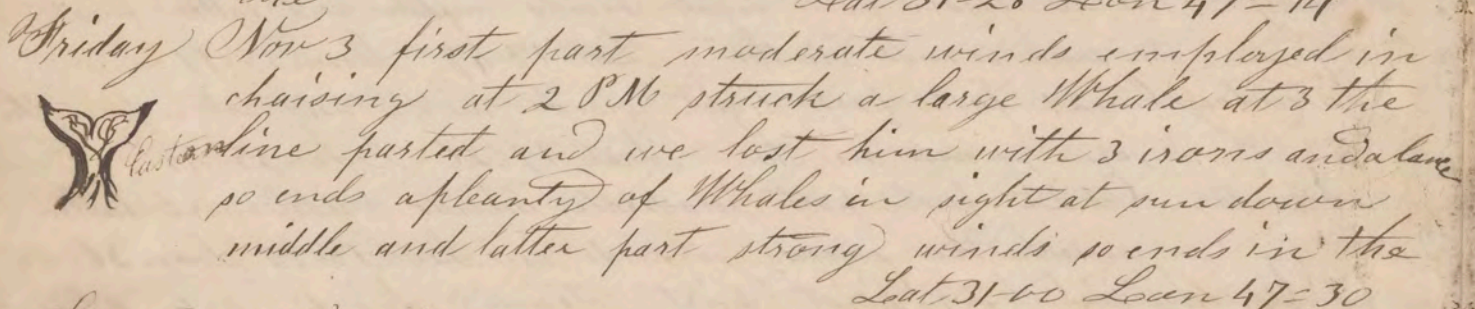 Lat 31-20 Lon 47=14
Friday Nov 3 first part moderate winds employed in
chaising at 2 PM struck a large Whale at 3 the
line parted and we lost him with 3 irons and a lance
so ends a pleanty of Whales in sight at sun down
middle and latter part strong winds so ends in the
Lat 31-00 Lon 47=30